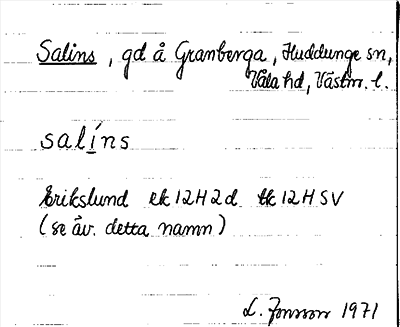 Salins, gd å Granberga, Huddunge sn,
Våla hd, Västm. l.
salíns
Erikslund ek 12H2d tk 12HSV
(se äv. detta namn)
L. Jonsson 1971